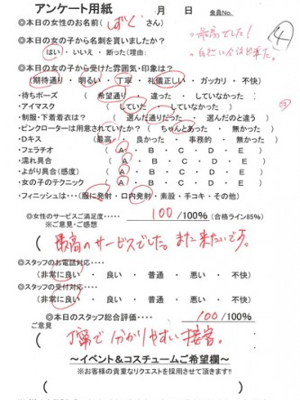 アンケート用紙 月 日 会員No.
◎本日の女性のお名前( しずく さん)
◎本日の女の子から名刺を貰いましたか?
はい・いいえ・断った(理由:
◎本日の女の子から受けた雰囲気・印象は?
期待通り・明るい・丁寧・礼儀正しい・ガッカリ・不快)
・待ちポーズ (希望通り・違った・していなかった)
・アイマスク (していた・していなかった)
・制服・下着着衣は? (選んだ通りだった・選んだのと違う)
・ピンクローターは用意されていたか?(ちゃんとあった・無かった)
・Dキス (最高・良かった・事務的・無かった)
・フェラチオ (A・B・C・D・E)
・濡れ具合 (A・B・C・D・E)
・よがり具合(感度) (A・B・C・D・E)
・女の子のテクニック (A・B・C・D・E)
・フィニッシュは・・(腹に発射・口内発射・素股・手コキ・その他)
◎女性のサービスご満足度‥‥ 100/100% (合格ライン85%)
※ご意見・ご感想
(最高のサービスでした。また来たいです。
◎スタッフのお電話対応‥‥
(非常に良い・良い・普通・悪い・不快)
◎スタッフの受付対応‥‥
(非常に良い・良い・普通・悪い・不快)
◎本日のスタッフ総合評価‥‥ 100/100%
ご意見
(丁寧で分かりやすい接客。
~イベント&コスチュームご希望欄~
※お客様の貴重なリクエストを採用させて頂きます!!
( )
・最高でした!
④